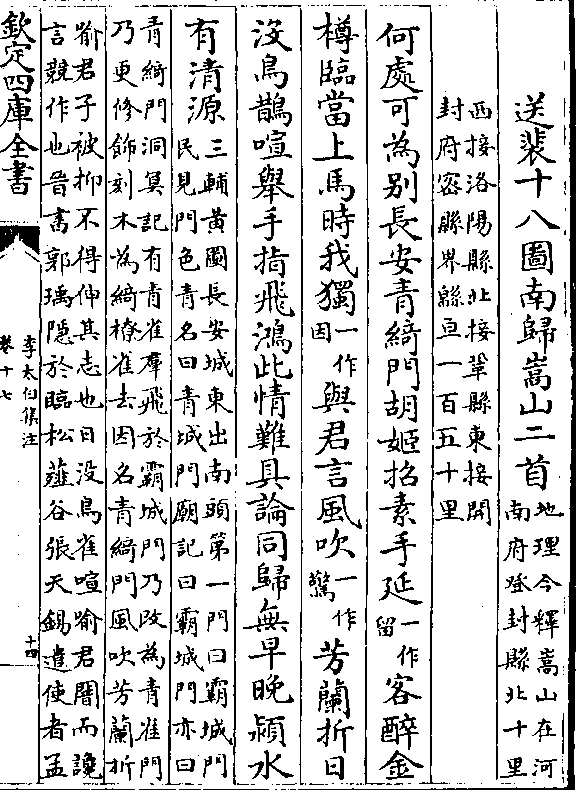 送裴十八圖南歸嵩山二首地理今釋嵩山在河
南府登封縣北十里
西接洛陽縣北接鞏縣東接開
封府密縣界緜亘一百五十里
何處可為别長安青綺門胡姬招素手延一作
留客醉金
樽臨當上馬時我獨一作
因與君言風吹一作
驚芳蘭折日
没鳥鵲喧舉手指飛鴻此情難具論同歸無早晚潁水
有清源三輔黄圖長安城東出南頭第一門曰霸城門
民見門色青名曰青城門廟記曰霸城門亦曰
青綺門洞冥記有青雀羣飛於霸城門乃改為青雀門
乃更修飾刻木為綺橑雀去因名青綺門風吹芳蘭折
喻君子被抑不得伸其志也日没鳥雀喧喻君闇而讒
言競作也晉書郭瑀隱於臨松薤谷張天錫遣使者孟
欽定四庫全書
李太白集注
卷十七
十四